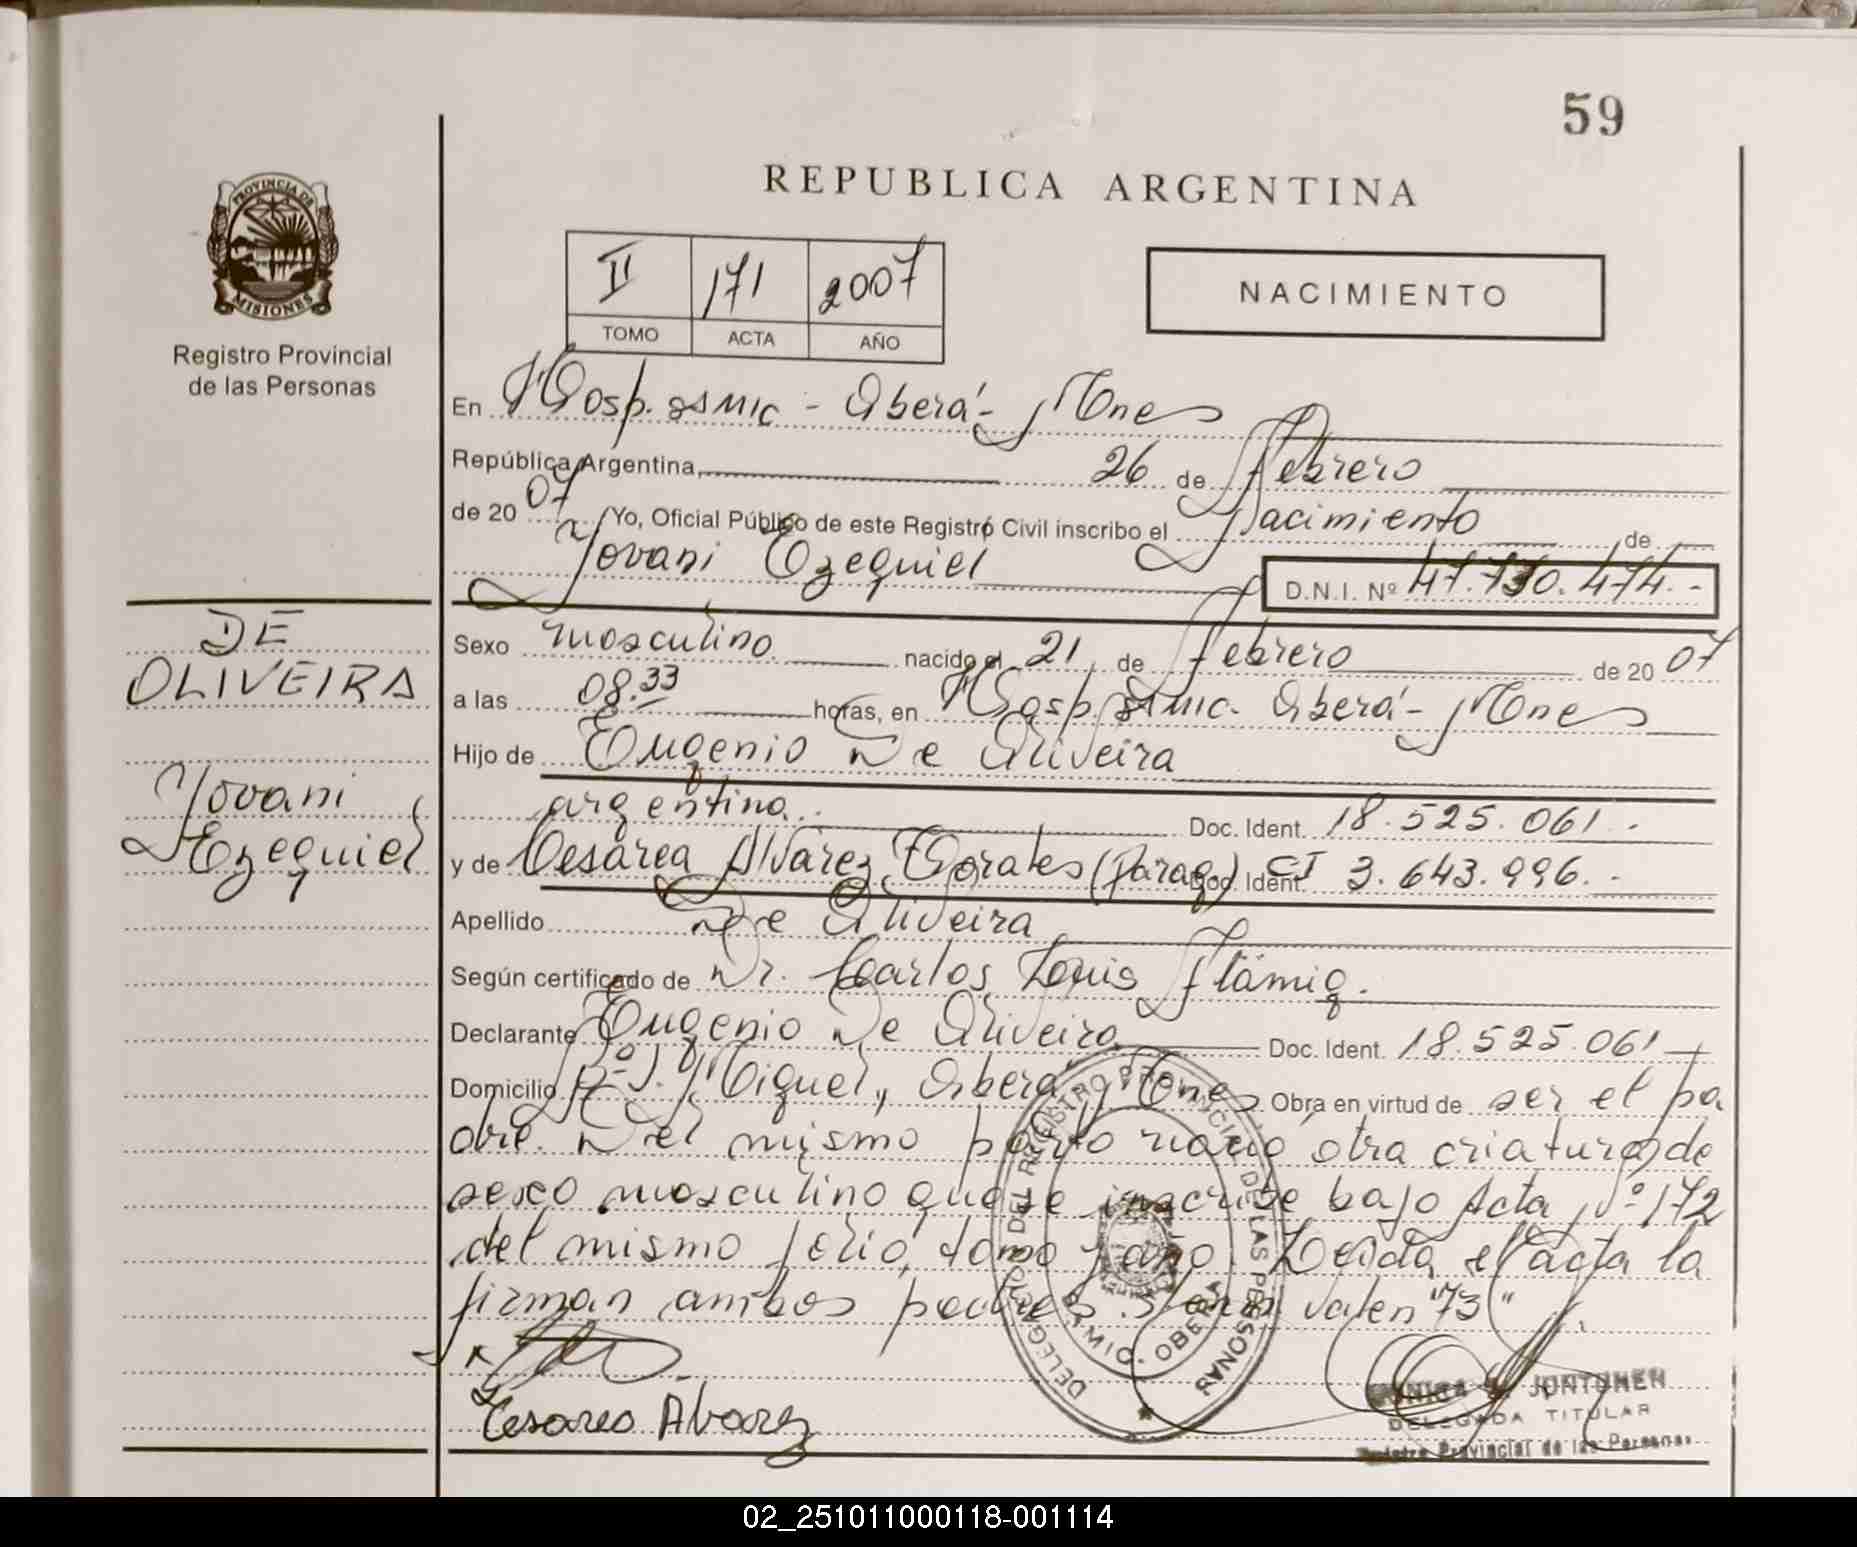 59
REPUBLICA ARGENTINA
PROVINCIA DE
MISIONES
Registro Provincial
de las Personas
II 171 2007
TOMO ACTA AÑO
NACIMIENTO
En Hosp. SAMIC - Oberá - Mnes
República Argentina, 26 de febrero
de 20 07 Yo, Oficial Público de este Registro Civil inscribo el Nacimiento de
Yovani Ezequiel D.N.I. Nº 47.730.474.-
DE
OLIVEIRA
Yovani
Ezequiel
Sexo masculino nacido el 21 de febrero de 20 07
a las 08.33 horas, en Hosp. SAMIC. Oberá - Mnes
Hijo de Eugenio De Oliveira
argentino. Doc. Ident. 18.525.061.-
y de Cesárea Alvarez (Parag) Doc. Ident. CI 3.643.996.-
Apellido De Oliveira
Según certificado de Dr. Carlos Louis
Declarante Eugenio De Oliveira Doc. Ident. 18.525.061
Domicilio Bº S. Miguel, Oberá, Mnes Obra en virtud de ser el pa
dre. Del mismo parto nació otra criatura de
sexo masculino que se inscribe bajo Acta Nº 172
del mismo folio, tomo y año. Leída el acta la
firman ambos padres. valen "73"
Cesarea Alvarez
DELEGACIÓN DEL REGISTRO PROVINCIAL DE LAS PERSONAS
OBERA
JUNTUNEN
DELEGADA TITULAR
Registro Provincial de las Personas
02_251011000118-001114